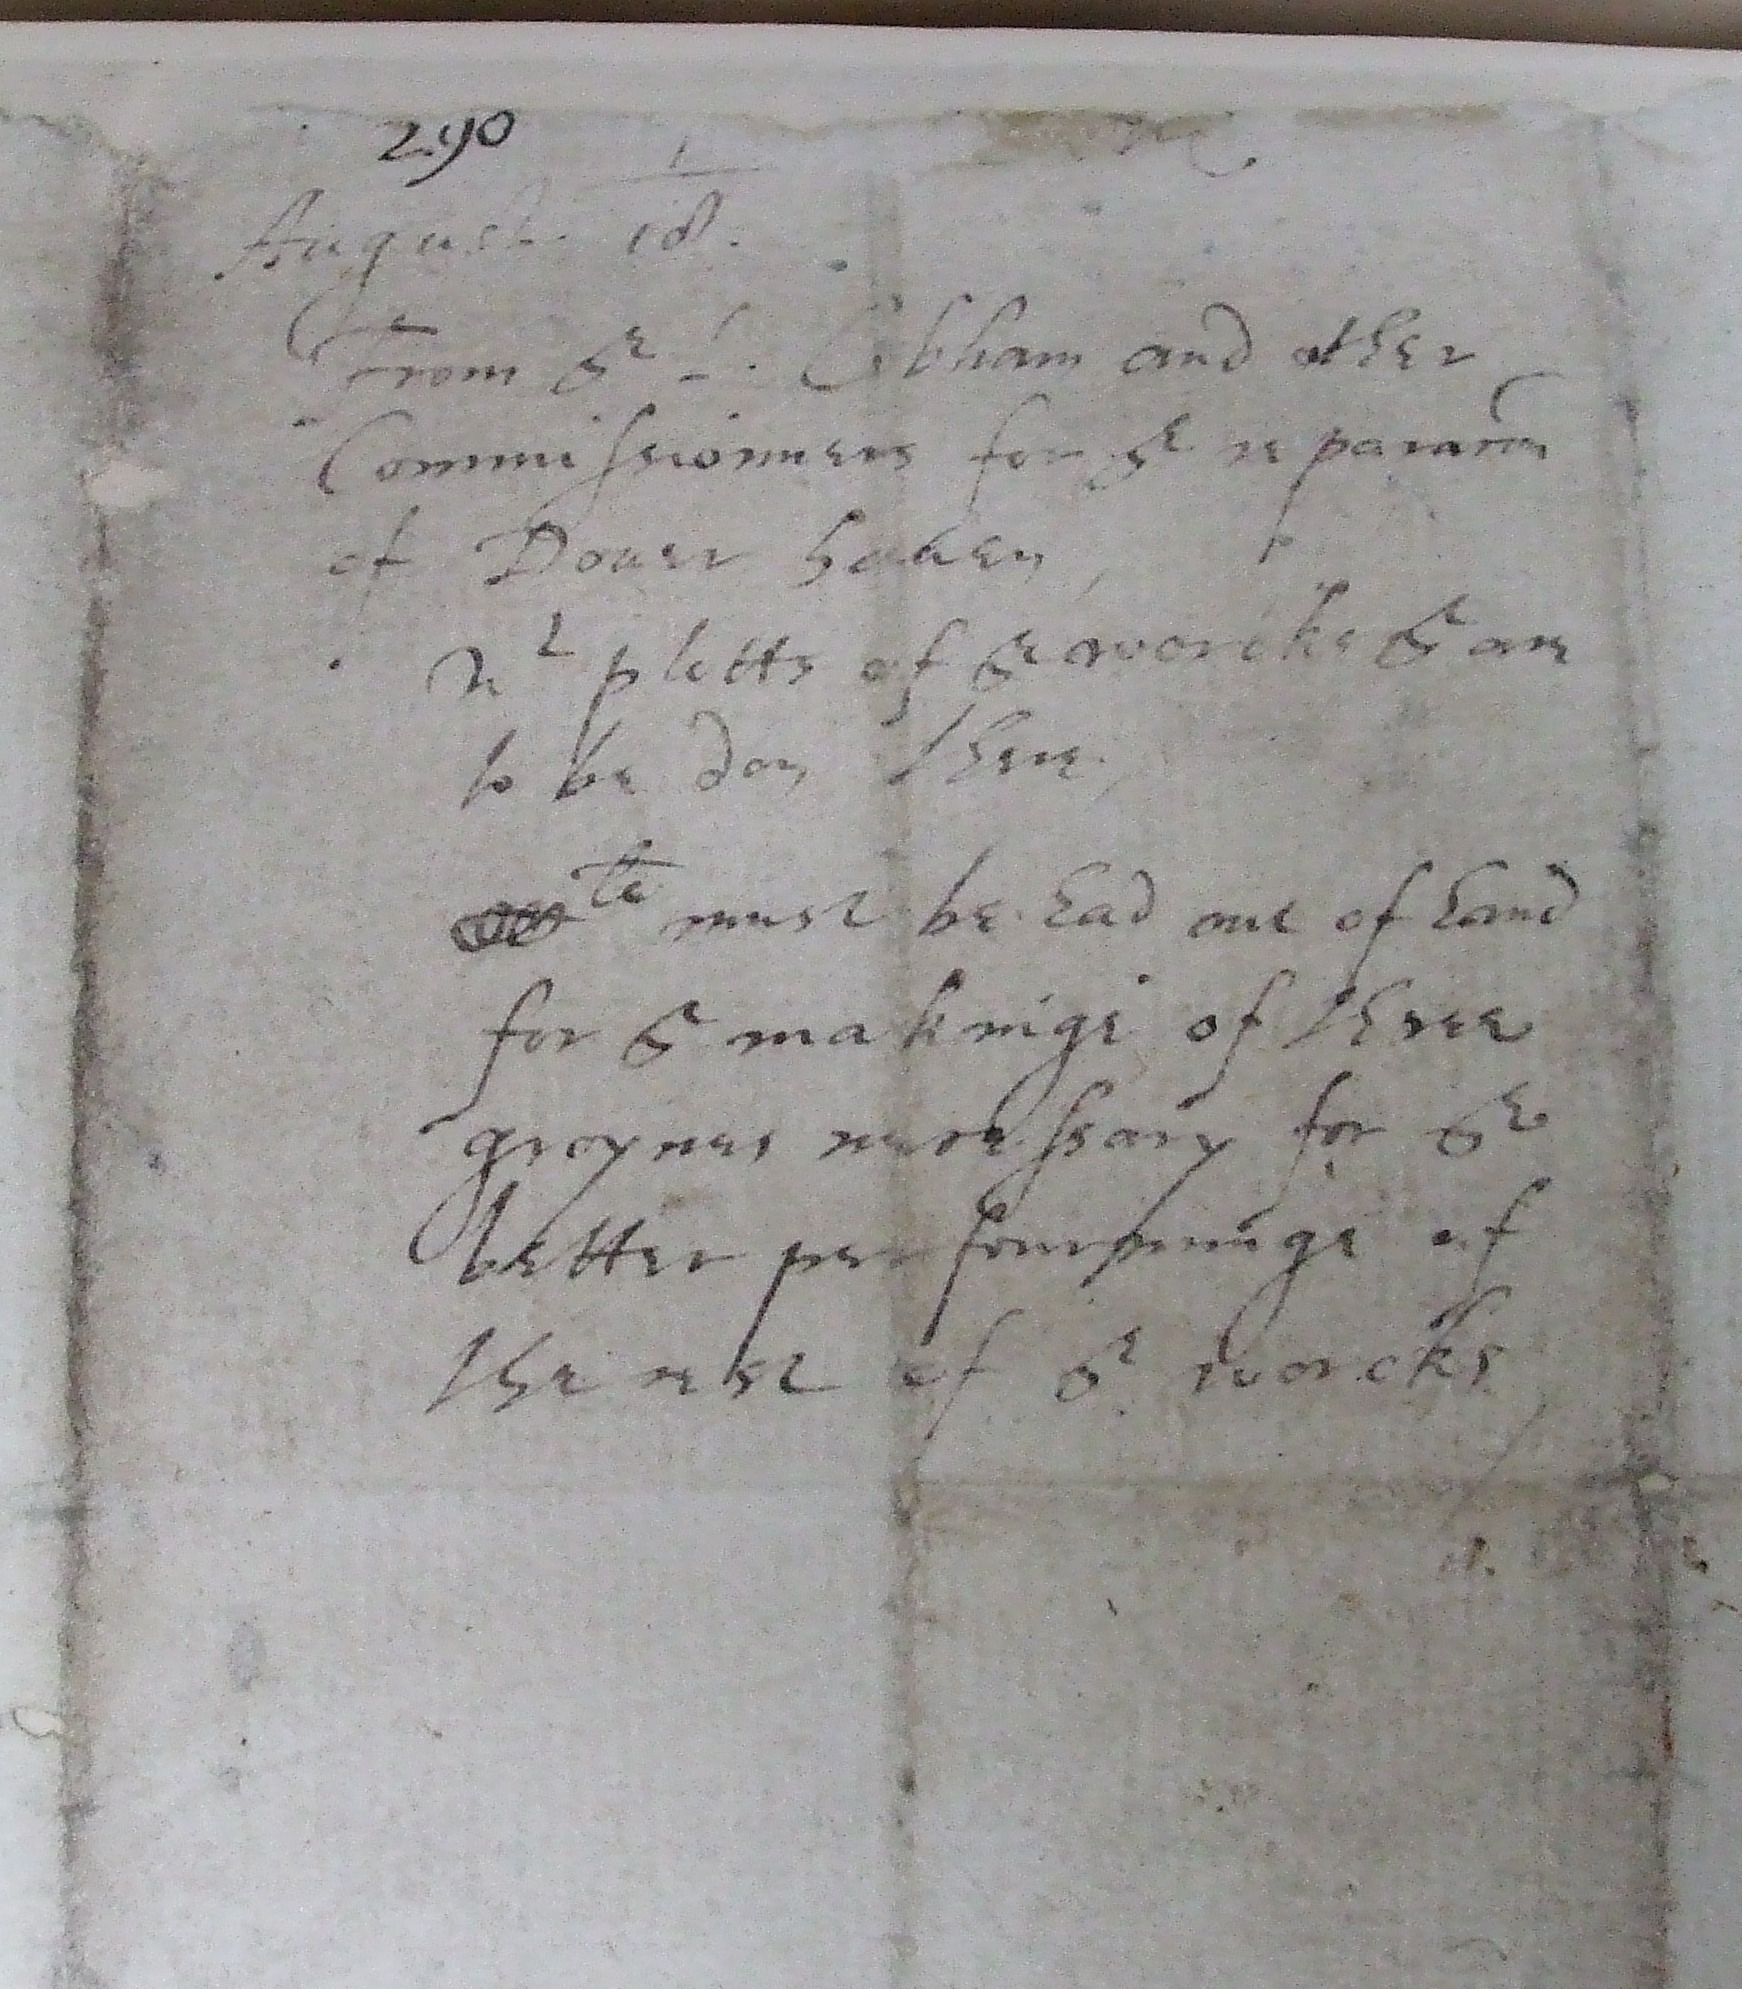 290
August 18.
From ye L. Cobham and other
Commissionners for ye reparacon
of Dover haven,
ye plotts of ye worcks yt are
to be don there.
must be had out of hand
for ye makinge of three
groynes necessary for ye
better perfourminge of
the rest of ye worcks